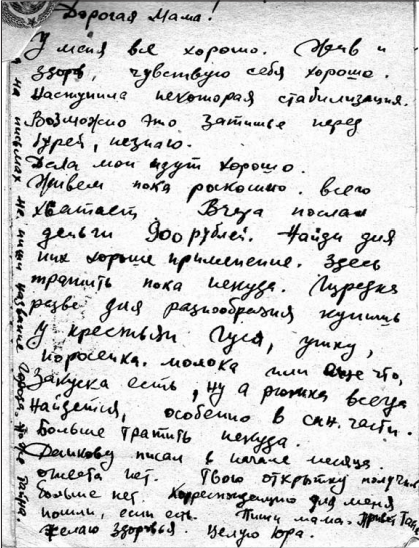 Дорогая Мама!
У меня все хорошо. Жив и
здоров, чувствую себя хорошо.
Наступила некоторая стабилизация.
Возможно это затишье перед
бурей, незнаю.
Дела мои идут хорошо.
Живем пока роскошно. всего
хватает Вчера послал
деньги 900 рублей. Найди для
них хорошие применение. Здесь
тратить пока некуда. Изредка
разве для разнообразия купишь
у крестьян Гуся, утку,
поросенка. молока или еще что,
Закуска есть, ну а рюмка всегда
найдется, особенно в сан. части.
Больше тратить некуда.
писал в начале месяца.
ответа нет. Твою открытку получил
больше нет. Корреспонденцию для меня
пошли, если есть. Пиши мама. Привет
Желаю здоровья. Целую Юра.
на письмах не пиши название города, то же района.